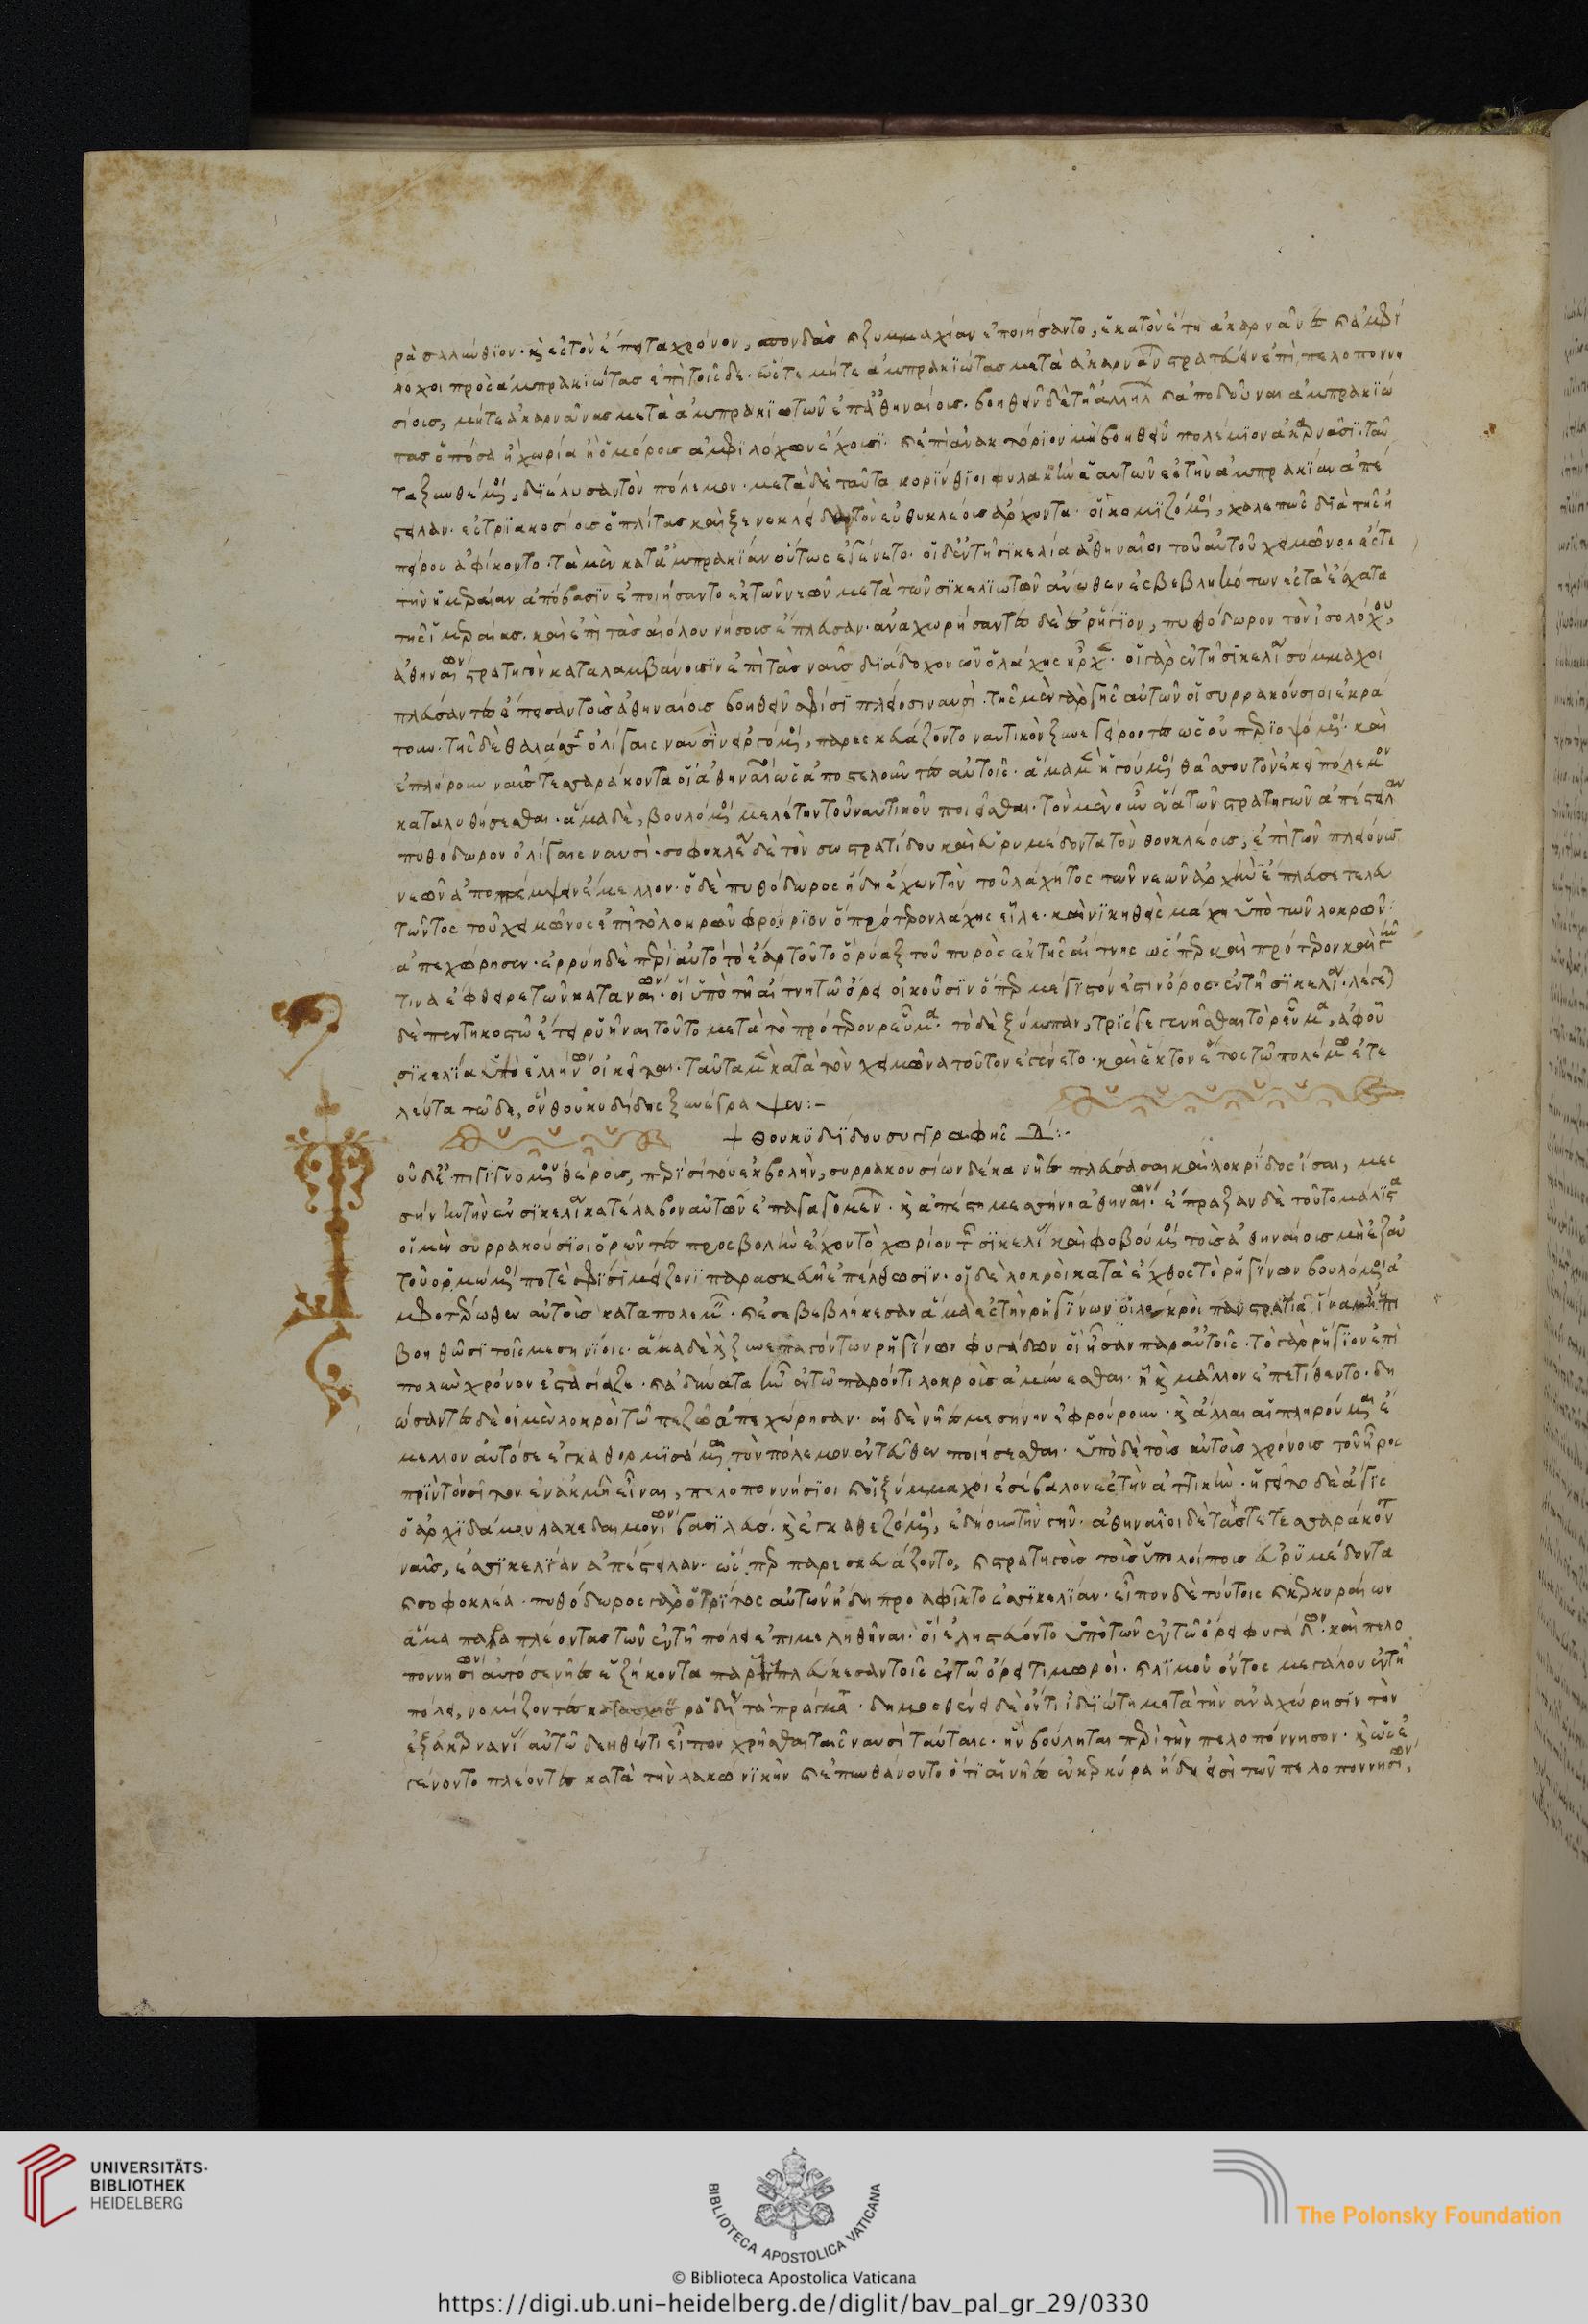 ρὰ σαλύνθιον· καὶ ἐς τὸν ἔπειτα χρόνον, σπονδὰς καὶ ξυμμαχίαν ἐποιήσαντο, ἑκατὸν ἔτη ἀκαρνᾶνες καὶ ἀμφί
λοχοι πρὸς ἀμπρακιώτας ἐπὶ τοῖσδε· ὥστε μήτε ἀμπρακιώτας μετὰ ἀκαρνάνων στρατεύειν ἐπὶ πελοποννη
σίοις, μήτε ἀκαρνᾶνας μετὰ ἀμπρακιωτῶν ἐπ' ἀθηναίοις. βοηθεῖν δὲ τῇ ἀλλήλων καὶ ἀποδοῦναι ἀμπρακιώ
τας ὁπόσα ἢ χωρία ἢ ὁμόρους ἀμφιλόχων ἔχουσι· καὶ ἐπὶ ἀνακτόριον μὴ βοηθεῖν πολέμιον ἀκαρνᾶσι· ταῦ
τα ξυνθέμενοι, διέλυσαν τὸν πόλεμον· μετὰ δὲ ταῦτα κορίνθιοι φυλακὴν ἑαυτῶν ἐς τὴν ἀμπρακίαν ἀπέ
στειλαν· ἐς τριακοσίους ὁπλίτας καὶ ξενοκλείδην τὸν εὐθυκλέους ἄρχοντα· οἳ κομιζόμενοι, χαλεπῶς διὰ τῆς ἠ
πείρου ἀφίκοντο· τὰ μὲν κατ' ἀμπρακίαν οὕτως ἐγένετο· οἱ δ' ἐν τῇ σικελίᾳ ἀθηναῖοι τοῦ αὐτοῦ χειμῶνος ἔς τε
τὴν ἱμεραίαν ἀπόβασιν ἐποιήσαντο ἐκ τῶν νεῶν μετὰ τῶν σικελιωτῶν ἄνωθεν ἐσβεβληκότων ἐς τὰ ἔσχατα
τῆς ἱμεραίας. καὶ ἐπὶ τὰς αἰόλου νήσους ἔπλευσαν· ἀναχωρήσαντες δὲ ἐς ῥήγιον, πυθόδωρον τὸν ἰσολόχου,
ἀθηναίων στρατηγὸν καταλαμβάνουσιν ἐπὶ τὰς ναῦς διάδοχον ὧν ὁ λάχης ἦρχε· οἱ γὰρ ἐν τῇ σικελίᾳ ξύμμαχοι
πλεύσαντες ἔπεισαν τοὺς ἀθηναίους βοηθεῖν σφίσι πλείοσι ναυσὶ· τῆς μὲν γὰρ γῆς αὐτῶν οἱ συρρακούσιοι ἐκρά
τουν· τῆς δὲ θαλάσσης ὀλίγαις ναυσὶν εἰργόμενοι, παρεσκευάζοντο ναυτικὸν ξυναγείροντες ὡς οὐ περιοψόμενοι· καὶ
ἐπλήρουν ναῦς τεσσαράκοντα οἱ ἀθηναῖοι ὡς ἀποστελοῦντες αὐτοῖς· ἅμα μὲν ἡγούμενοι θᾶσσον τὸν ἐκεῖ πόλεμον
καταλυθήσεσθαι· ἅμα δὲ, βουλόμενοι μελέτην τοῦ ναυτικοῦ ποιεῖσθαι· τὸν μὲν οὖν ἕνα τῶν στρατηγῶν ἀπέστειλαν
πυθόδωρον ὀλίγαις ναυσὶ· σοφοκλέα δὲ τὸν σωστρατίδου καὶ εὐρυμέδοντα τὸν θουκλέους, ἐπὶ τῶν πλειόνων
νεῶν ἀποπέμψειν ἔμελλον· ὁ δὲ πυθόδωρος ἤδη ἔχων τὴν τοῦ λάχητος τῶν νεῶν ἀρχὴν ἔπλευσε τελευ
τῶντος τοῦ χειμῶνος ἐπὶ τὸ λοκρῶν φρούριον ὃ πρότερον λάχης εἷλε· καὶ νικηθεὶς μάχῃ ὑπὸ τῶν λοκρῶν·
ἀπεχώρησεν· ἐρρύη δὲ περὶ αὐτὸ τὸ ἔαρ τοῦτο ὁ ῥύαξ τοῦ πυρὸς ἐκ τῆς αἴτνης ὥσπερ καὶ πρότερον καὶ γῆν
τινα ἔφθειρε τῶν καταναίων· οἳ ὑπὸ τῇ αἴτνῃ τῷ ὄρει οἰκοῦσιν ὅπερ μέγιστόν ἐστιν ὄρος ἐν τῇ σικελίᾳ· λέγεται
δὲ πεντηκοστῷ ἔτει ῥυῆναι τοῦτο μετὰ τὸ πρότερον ῥεῦμα· τὸ δὲ ξύμπαν, τρὶς γεγενῆσθαι τὸ ῥεῦμα, ἀφ' οὗ
σικελία ὑπὸ ἑλλήνων οἰκεῖται· ταῦτα μὲν κατὰ τὸν χειμῶνα τοῦτον ἐγένετο· καὶ ἕκτον ἔτος τῷ πολέμῳ ἐτε
λεύτα τῷδε, ὃν θουκυδίδης ξυνέγραψεν:–
+ θουκυδίδου συγγραφῆς Δ:·
οῦ δ' ἐπιγιγνομένου θέρους, περὶ σίτου ἐκβολὴν, συρρακουσίων δέκα νῆες πλεύσασαι καὶ λοκρίδες ἴσαι, μεσ
σήνην τὴν ἐν σικελίᾳ κατέλαβον αὐτῶν ἐπαγαγομένων· καὶ ἀπέστη μεσσήνη ἀθηναίων· ἔπραξαν δὲ τοῦτο μάλιστα
οἱ μὲν συρρακούσιοι ὁρῶντες προσβολὴν ἔχον τὸ χωρίον τῆς σικελίας καὶ φοβούμενοι τοὺς ἀθηναίους μὴ ἐξ αὐ
τοῦ ὁρμώμενοί ποτε σφίσι μείζονι παρασκευῇ ἐπέλθωσιν· οἱ δὲ λοκροὶ κατὰ ἔχθος τὸ ῥηγίνων βουλόμενοι ἀ
μφοτέρωθεν αὐτοὺς καταπολεμεῖν· καὶ ἐσεβεβλήκεσαν ἅμα ἐς τὴν ῥηγίνων οἱ λοκροὶ πανστρατιᾷ ἵνα μὴ ἐπι
βοηθῶσι τοῖς μεσηνίοις· ἅμα δὲ καὶ ξυνεπαγόντων ῥηγίνων φυγάδων οἳ ἦσαν παρ' αὐτοῖς· τὸ γὰρ ῥήγιον ἐπὶ
πολὺν χρόνον ἐστασίαζε· καὶ ἀδύνατα ἦν ἐν τῷ παρόντι λοκροὺς ἀμύνεσθαι· ᾗ καὶ μᾶλλον ἐπετίθεντο· δῃ
ώσαντες δὲ οἱ μὲν λοκροὶ τῷ πεζῷ ἀπεχώρησαν· αἱ δὲ νῆες μεσήνην ἐφρούρουν· καὶ ἄλλαι αἱ πληρούμεναι ἔ
μελλον αὐτόσε ἐγκαθορμισάμεναι τὸν πόλεμον ἐντεῦθεν ποιήσεσθαι· ὑπὸ δὲ τοὺς αὐτοὺς χρόνους τοῦ ἦρος
πρὶν τὸν σῖτον ἐν ἀκμῇ εἶναι, πελοποννήσιοι καὶ οἱ ξύμμαχοι ἐσέβαλον ἐς τὴν ἀττικὴν· ἡγεῖτο δὲ ἄγις
ὁ ἀρχιδάμου λακεδαιμονίων βασιλεύς· καὶ ἐγκαθεζόμενοι, ἐδῄουν τὴν γῆν· ἀθηναῖοι δὲ τάς τε τεσσαράκοντα
ναῦς, ἐς σικελίαν ἀπέστειλαν· ὥσπερ παρεσκευάζοντο, καὶ στρατηγοὺς τοὺς ὑπολοίπους εὐρυμέδοντα
καὶ σοφοκλέα· πυθόδωρος γὰρ ὁ τρίτος αὐτῶν ἤδη προαφῖκτο ἐς σικελίαν· εἶπον δὲ τούτοις καὶ κερκυραίων
ἅμα παραπλέοντας τῶν ἐν τῇ πόλει ἐπιμεληθῆναι· οἳ ἐληστεύοντο ὑπὸ τῶν ἐν τῷ ὄρει φυγάδων· καὶ πελο
ποννησίων αὐτόσε νῆες ἑξήκοντα παρεπεπλεύκεσαν τοῖς ἐν τῷ ὄρει τιμωροὶ· καὶ λιμοῦ ὄντος μεγάλου ἐν τῇ
πόλει, νομίζοντες κατασχήσειν ῥᾳδίως τὰ πράγματα· δημοσθένει δὲ ὄντι ἰδιώτῃ μετὰ τὴν ἀναχώρησιν τὴν
ἐξ ἀκαρνανίας αὐτῷ δεηθέντι εἶπον χρῆσθαι ταῖς ναυσὶ ταύταις· ἢν βούληται περὶ τὴν πελοπόννησον· καὶ ὡς ἐ
γένοντο πλέοντες κατὰ τὴν λακωνικὴν καὶ ἐπυνθάνοντο ὅτι αἱ νῆες ἐν κερκύρᾳ ἤδη εἰσὶ τῶν πελοποννησίων,
UNIVERSITÄTS-
BIBLIOTHEK
HEIDELBERG
BIBLIOTECA APOSTOLICA VATICANA
The Polonsky Foundation
© Biblioteca Apostolica Vaticana
https://digi.ub.uni-heidelberg.de/diglit/bav_pal_gr_29/0330